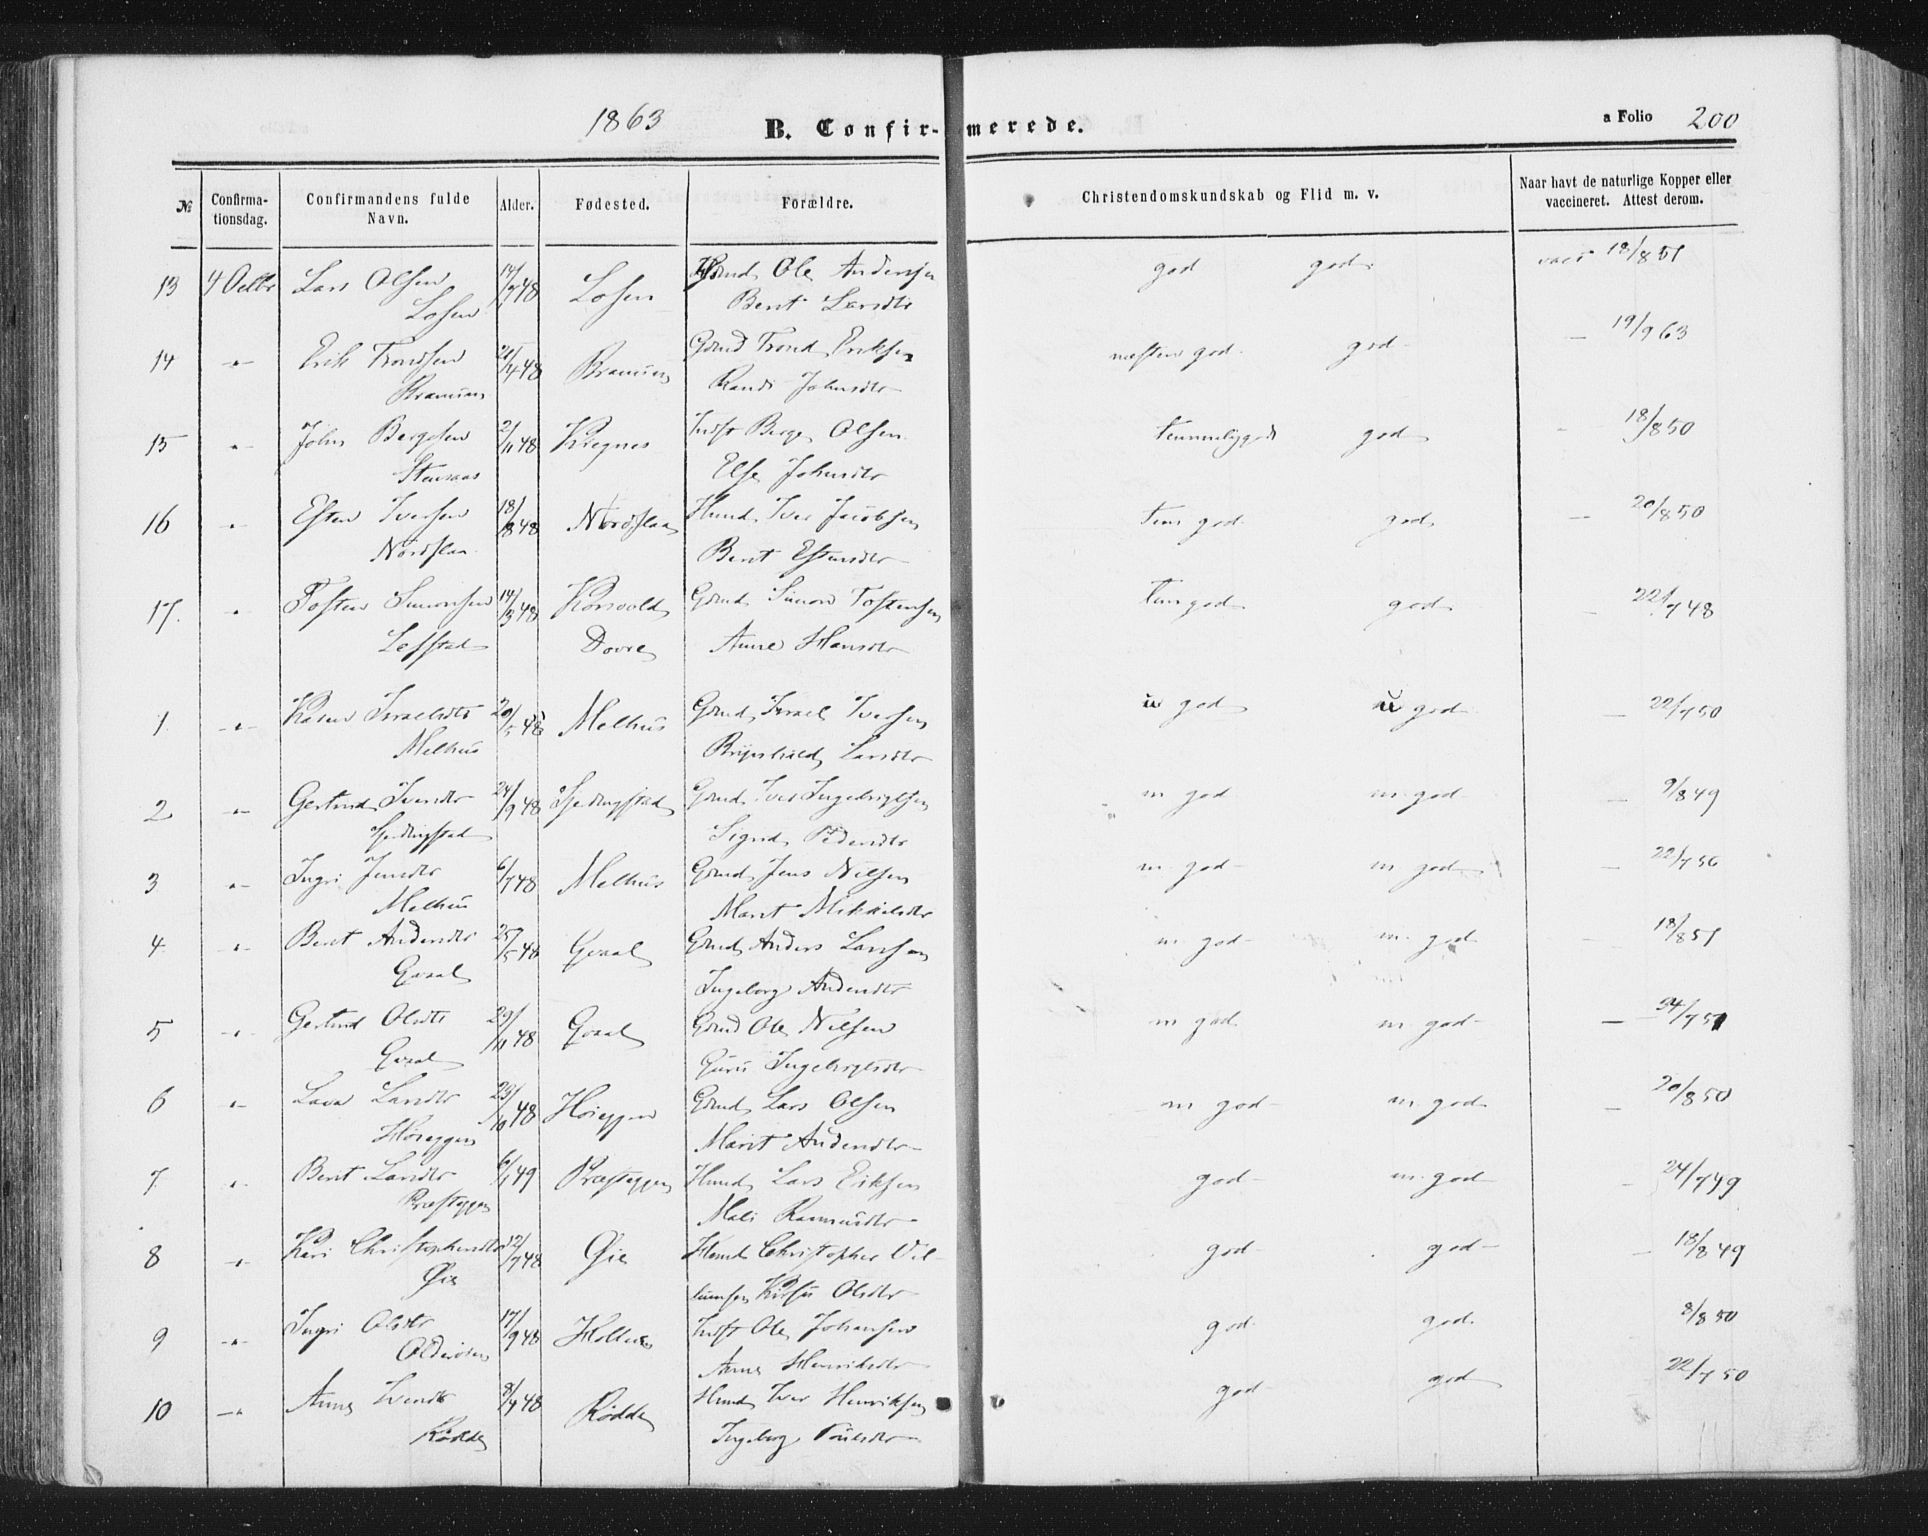 1863 B. Confir- merede. a Folio 200
№ Confirma-tionsdag. Confirmandens fulde Navn. Alder. Fødested. Forældre. Christendomskundskab og Flid m. v. Naar havt de naturlige Kopper eller vaccineret. Attest derom.
13 4 Octbr Lars Olsen 14/7 48 Losen Hmd. Ole Andersen god god vacc 18/8 51
Losen Berit Larsdtr
14 " Erik Trondsen 21/4 48 Gdmd Trond Eriksen næsten god god — 19/9 63
Randi Johnsdtr
15 " John Bergesen 2/11 48 Kregnes Indst Berge Olsen temmelig god god 18/8 50
Stenaas Else Johnsdtr
16 " Esten Iversen 18/8 48 Nordslaa Hmd. Iver Jacobsen tem god god — 20/8 50
Nordslaa Berit Estensdtr
17. " Tosten Simonsen 14/3 48 Korsvold Gdmd. Simon Tostensen tem god god — 22/7 48
Lefstad Dovre Anne Hansdtr
1 " Karen Israelsdtr 20/5 48 Melhus Gdmd. Israel Iversen m god m god — 22/7 50
Melhus Brynhild Larsdtr
2 " Gertrud Iversdtr 24/9 48 Gdmd. Iver Ingebrigtsen m god m. god — 9/8 49
Sigrid Pedersdtr
3 " Ingri Jensdtr 6/7 48 Melhus Gdmd. Jens Nilsen m. god m. god — 22/7 50
Melhus Marit Mikkelsdtr
4. " Berit Andersdtr 25/5 48 Qvaal Gdmd. Anders Larssen m. god m. god 18/8 51
Qvaal Ingeborg Andersdtr
5 " Gertrud Olsdtr 29/11 48 Qvaal Gdmd Ole Nilsen m god m. god — 24/7 51
Qvaal Guru Ingebrigtsdtr
6 " Larsdtr 23/10 48 Høieggen Gdmd. Lars Olsen m god m. god — 20/8 50
Høieggen Marit Andersdtr
7 " Berit Larsdtr 6/1 49 Præsteggen Hmd. Lars Eriksen god m. god 24/7 49
Præsteggen Mali Rasmusdtr
8 " Kari Christophersdtr 12/7 48 Øie Hmd Christopher Vil- god god — 18/8 49
Øie lumsen Olsdtr
9 " Ingri Olsdtr 17/9 48 Indst Ole Johansen god god 8/8 50
Anne Henriksdtr
10 " Anne Iversdtr 8/7 48 Rødde Hmd. Iver Henriksen god god 22/7 50
Rødde Ingeborg Poulsdtr